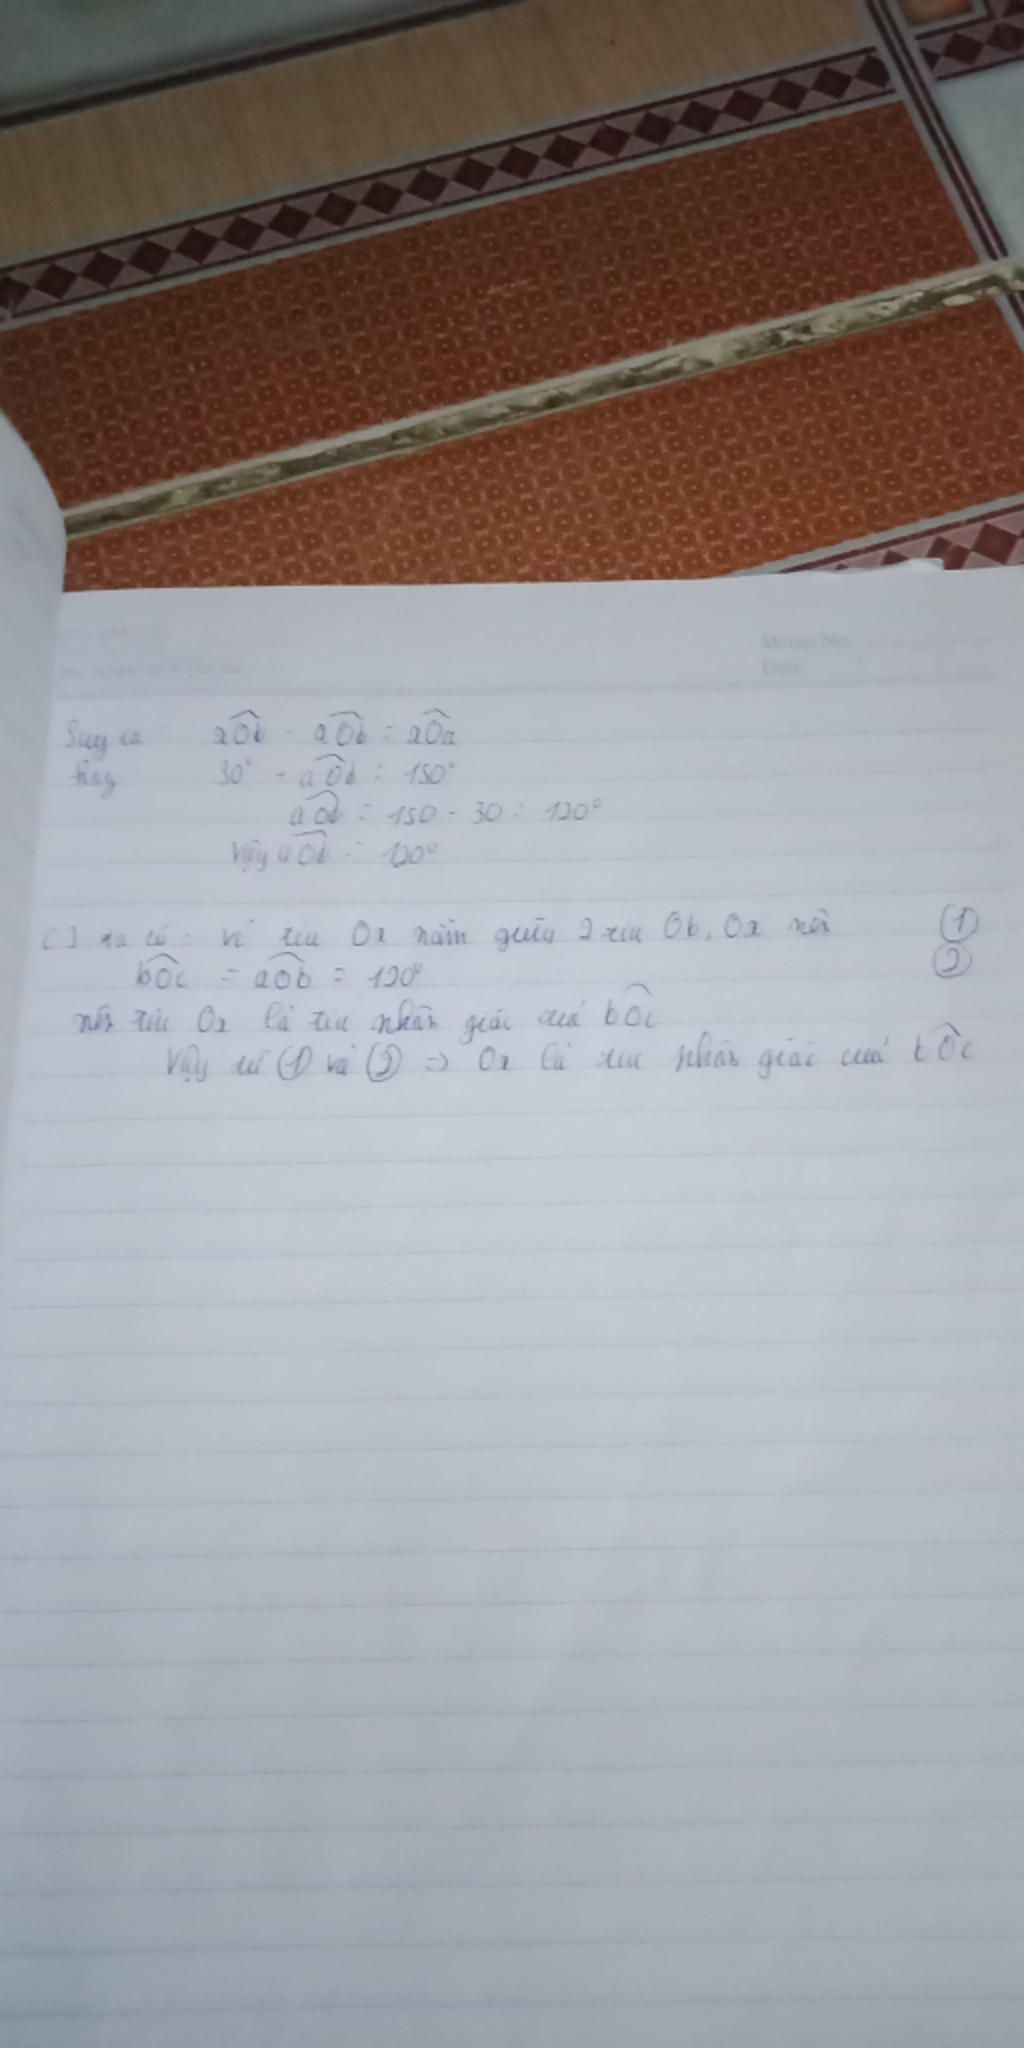 Memo No.
Date / /
Suy ra : xOb - aOb = xOa
hay 30° - aOb = 150°
aOb = 150 - 30 = 120°
Vậy aOb = 120°
c) ta có : vì tia Ox nằm giữa 2 tia Ob, Ox nên (1)
bOc = aOb = 120° (2)
nên tia Ox là tia phân giác của bOc
Vậy từ (1) và (2) => Ox là tia phân giác của bOc